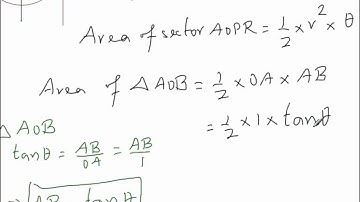 Area of sector AOPR = 1/2 × r² × θ
Area of △AOB = 1/2 × OA × AB
= 1/2 × 1 × tanθ
△AOB
tanθ = AB/OA = AB/1
AB = tanθ